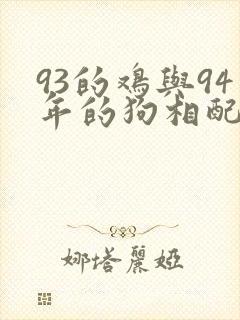 93的鸡與94
年的狗相配
娜塔麗婭